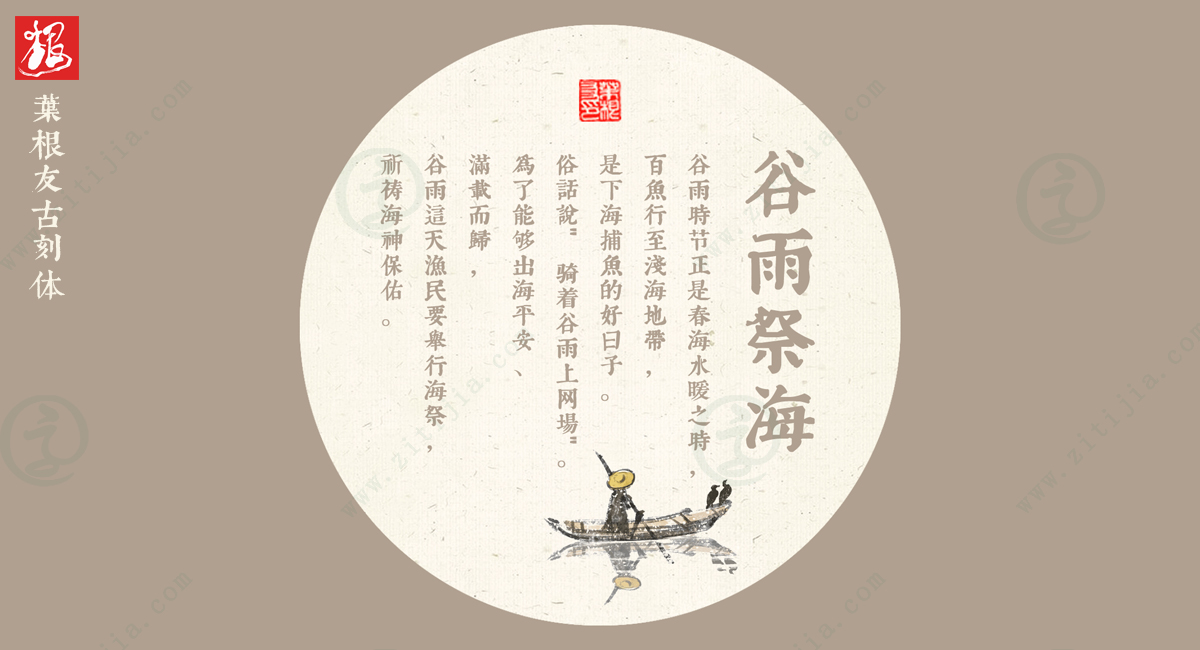 根
葉根友古刻体
葉根友印
谷雨祭海
谷雨時节正是春海水暖之時，
百魚行至淺海地帶，
是下海捕魚的好日子。
俗話說"騎着谷雨上网場"。
為了能够出海平安、
滿載而歸，
谷雨這天漁民要舉行海祭，
祈祷海神保佑。
www.zitijia.com
www.zitijia.com
www.zitijia.com
www.zitijia.com